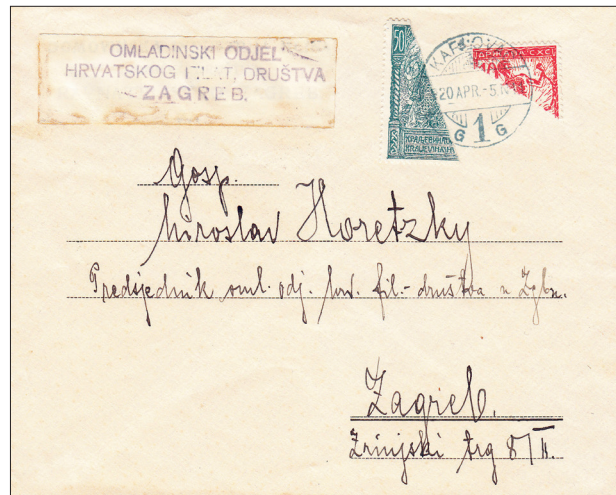 OMLADINSKI ODJEL
HRVATSKOG FILAT. DRUŠTVA
ZAGREB.
50
КРАЉЕВИНА
KRALJEVINA
20 APR.-5
G 1 G
Gosp.
Miroslav Horetzky
Predsjednik oml. odj. hrv. fil.-društva u Zgbu.
Zagreb.
Zrinjski trg 8/II.